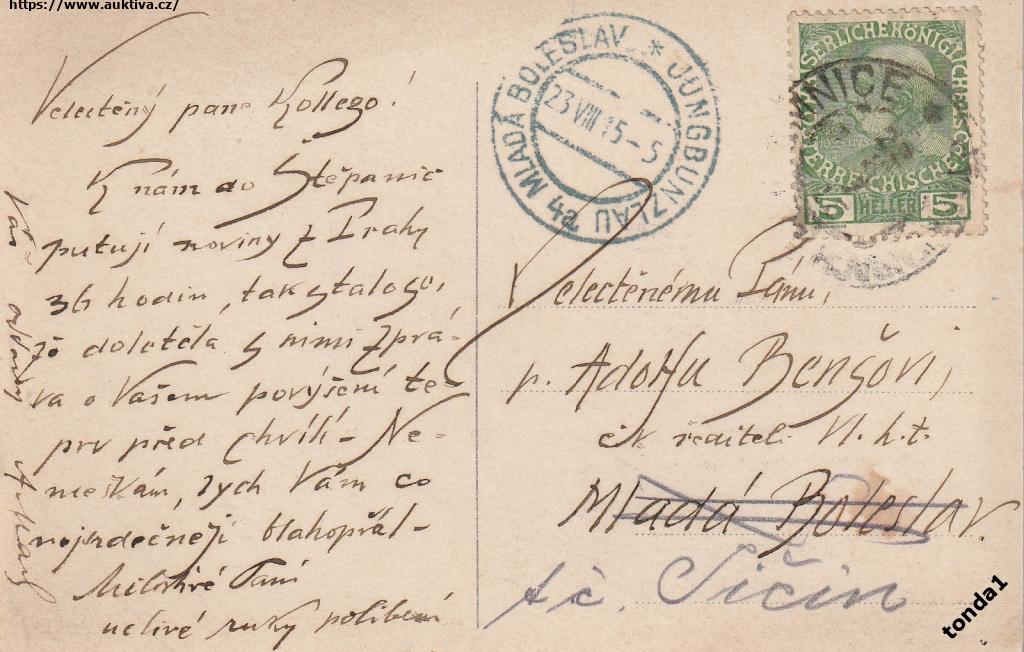 https://www.auktiva.cz/
Velectěný pane Kollego!
K nám do Štěpanic
putují noviny z Prahy
36 hodin, tak stalo se,
že doletěla s nimi zprá-
va o Vašem povýšení te-
prv před chvílí - Ne-
meškám, bych Vám co
nejsrdečněji blahopřál -
Milostivé Paní
uctivé ruky políbení
Váš oddaný
MLADÁ BOLESLAV * JUNGBUNZLAU 4a
23 VIII 15-5
NICE
KAISERLICHE KÖNIGLICHE
ÖSTERREICHISCHE
5 HELLER 5
Velectěnému Pánu,
p. Adolfu Benšovi,
c. k. řediteli
Mladá Boleslav.
t č. Jičín
tonda1